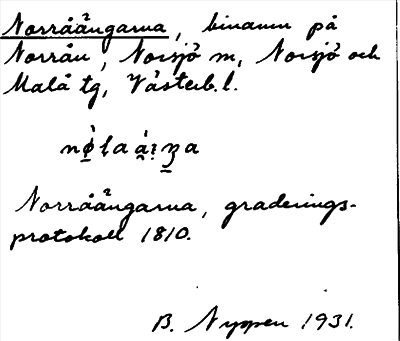 Norråängarna, binamn på
Norrån, Norsjö sn, Norsjö och
Malå tg, Västerb. l.
Norråängarna, graderings-
protokoll 1810.
B. Nyppen 1931.